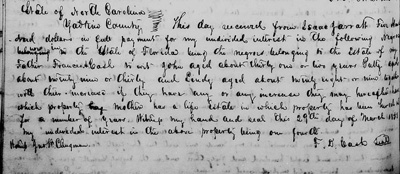 State of North Carolina
Yadkin County This day received from Isaac Jarratt Five hun
dred dollars in full payment for my undivided interest in the following Negroes
belonging to the Estate of Florida being the negroes belonging to the Estate of my
Father Francis Cash to wit John aged about thirty one or two years Patty aged
about twenty nine or thirty and Lindy aged about twenty eight or nine together
with their increase if they have any or any increase they may have
which property my mother has a life Estate in which property has been
for a number of years. Witness my hand and seal this 29th day of March 1853
my undivided interest in the above property being one fourth
Clingman Cash Seal